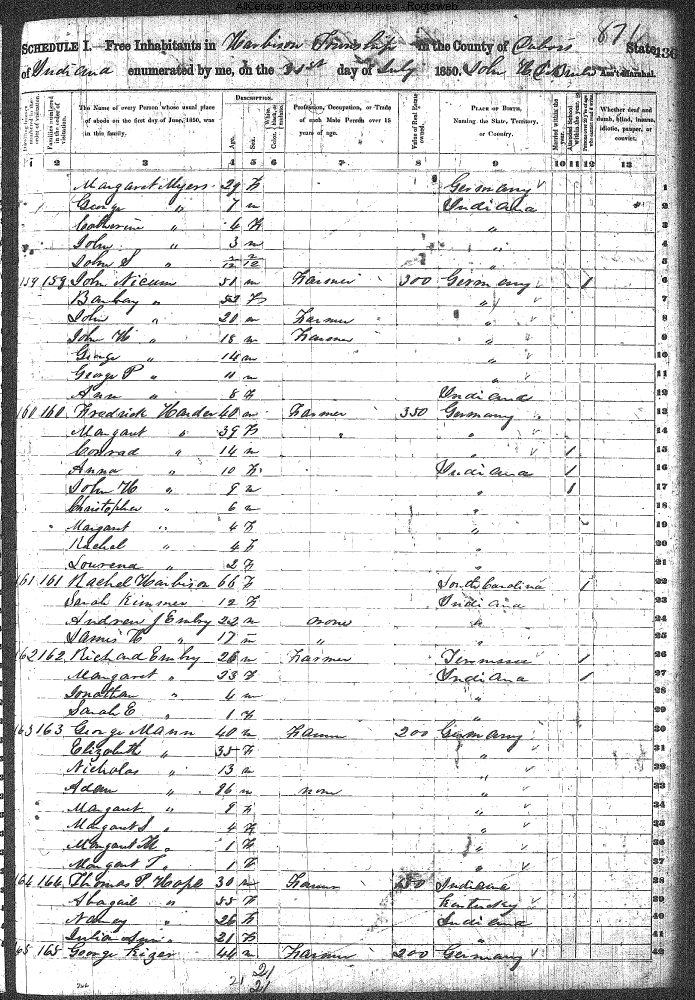 AllCensus - USGenWeb Archives - Rootsweb
871
SCHEDULE I.—Free Inhabitants in Harbison Township in the County of Dubois State 136
of Indiana enumerated by me, on the 31st day of July 1850. John Ass't Marshal.
DESCRIPTION.
The Name of every Person whose usual place of abode on the first day of June, 1850, was in this family.
Age. Sex. Color
Profession, Occupation, or Trade of each Male Person over 15 years of age.
Value of Real Estate owned.
PLACE OF BIRTH. Naming the State, Territory, or Country.
Married within the year.
Attended School within the year.
Whether deaf and dumb, blind, insane, idiotic, pauper, or convict.
1 2 3 4 5 6 7 8 9 10 11 12 13
Margaret Myers 29 F Germany 1
George " 7 m Indiana 2
Catherine " 6 F " 3
John " 3 m " 4
John S " 2/12 5
159 159 John Nicum 51 m Farmer 300 Germany 1 6
" 52 F " 7
John " 20 m Farmer " 8
John H " 18 m Farmer " 9
George " 14 m " 10
George P " 11 m " 11
Ann " 8 F Indiana 12
160 160 Fredrick Harder 40 m Farmer 350 Germany 13
Margaret " 39 F " 14
Conrad " 14 m " 1 15
Anna " 10 F Indiana 1 16
John H " 9 m " 1 17
Christopher " 6 m " 18
Margaret " 4 F " 19
Rachel " 4 F " 20
Lourena " 2 F " 21
161 161 Rachel Harbison 66 F South Carolina 1 22
Sarah Kimmer 12 F Indiana 23
Andrew J Embry 22 m none " 24
James H " 17 m " " 25
162 162 Richard Embry 26 m Farmer Tennessee 1 26
Margaret " 23 F Indiana 1 27
Jonathan " 4 m " 28
Sarah E " 1 F " 29
163 163 George Mann 40 m Farmer 200 Germany 30
Elizabeth " 35 F " 31
Nicholas " 13 m " 32
Adam " m none 33
Margaret " 9 F " 34
Margaret S " 4 F " 35
Margaret M " 1 F " 36
Margaret T " 1 F " 37
164 164 Thomas P Hope 30 m Farmer Indiana 38
Abagail " 55 F Kentucky 39
Nancy " 26 F Indiana 40
Julia Ann " 21 F " 41
165 165 George Kizer 44 m Farmer 200 Germany 42
21 21
21